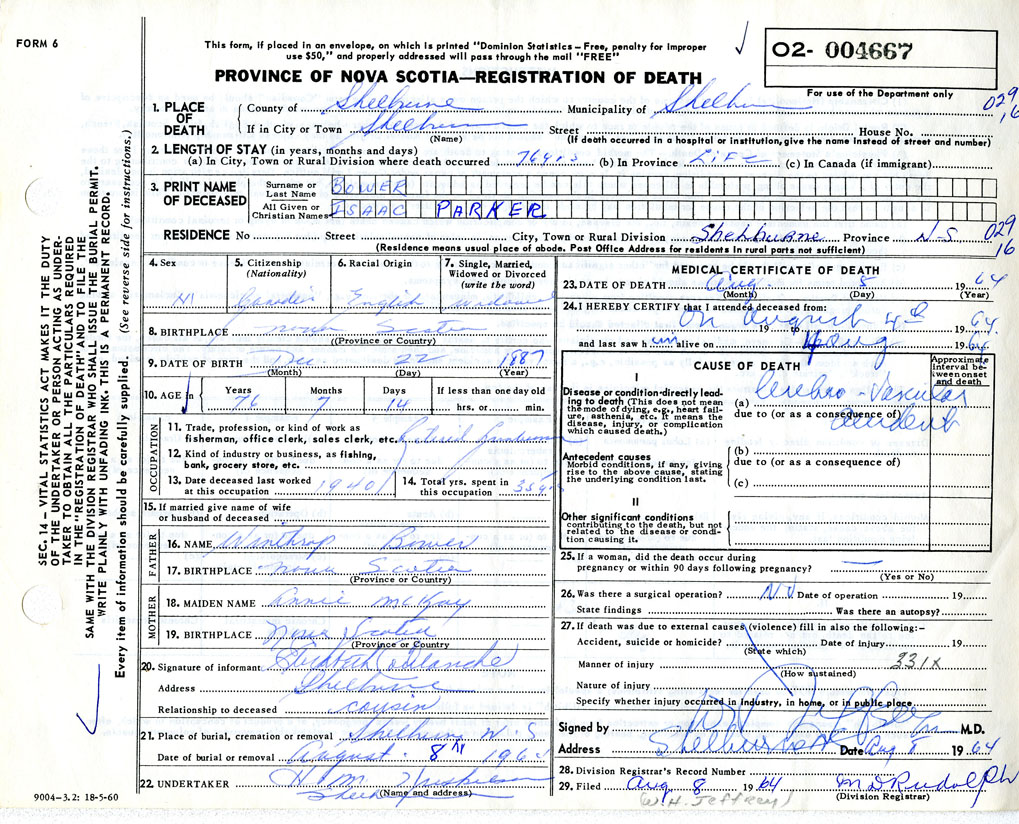 FORM 6
This form, if placed in an envelope, on which is printed "Dominion Statistics – Free, penalty for improper
use $50," and properly addressed will pass through the mail "FREE"
PROVINCE OF NOVA SCOTIA—REGISTRATION OF DEATH
O2- 004667
For use of the Department only
029
16
SEC. 14 – VITAL STATISTICS ACT MAKES IT THE DUTY
OF THE UNDERTAKER OR PERSON ACTING AS UNDER-
TAKER TO OBTAIN ALL THE PARTICULARS REQUIRED
IN THE "REGISTRATION OF DEATH" AND TO FILE THE
SAME WITH THE DIVISION REGISTRAR WHO SHALL ISSUE THE BURIAL PERMIT.
WRITE PLAINLY WITH UNFADING INK. THIS IS A PERMANENT RECORD.
Every item of information should be carefully supplied. (See reverse side for instructions.)
1. PLACE OF DEATH
County of Shelburne Municipality of Shelburne
If in City or Town Shelburne Street House No.
(Name) (If death occurred in a hospital or institution, give the name instead of street and number)
2. LENGTH OF STAY (in years, months and days)
(a) In City, Town or Rural Division where death occurred 76 yrs (b) In Province LIFE (c) In Canada (if immigrant)
3. PRINT NAME OF DECEASED
Surname or Last Name BOWER
All Given or Christian Names ISAAC PARKER
RESIDENCE No Street City, Town or Rural Division Shelburne Province N-S 029
16
(Residence means usual place of abode. Post Office Address for residents in rural parts not sufficient)
4. Sex M
5. Citizenship (Nationality) Canadian
6. Racial Origin English
7. Single, Married, Widowed or Divorced (write the word) widowed
8. BIRTHPLACE Nova Scotia
(Province or Country)
9. DATE OF BIRTH Dec 22 1887
(Month) (Day) (Year)
10. AGE in Years 76 Months 7 Days 14 If less than one day old hrs. or min.
OCCUPATION
11. Trade, profession, or kind of work as
fisherman, office clerk, sales clerk, etc. retired
12. Kind of industry or business, as fishing,
bank, grocery store, etc.
13. Date deceased last worked
at this occupation 1940
14. Total yrs. spent in
this occupation 35 yrs
15. If married give name of wife
or husband of deceased
FATHER
16. NAME Winthrop Bower
17. BIRTHPLACE Nova Scotia
(Province or Country)
MOTHER
18. MAIDEN NAME Annie McKay
19. BIRTHPLACE Nova Scotia
(Province or Country)
20. Signature of informant
Address Shelburne
Relationship to deceased cousin
21. Place of burial, cremation or removal Shelburne N-S
Date of burial or removal August 8 196
22. UNDERTAKER H. M.
Shelburne
(Name and address)
9004–3.2: 18-5-60
MEDICAL CERTIFICATE OF DEATH
23. DATE OF DEATH Aug. 5 1964
(Month) (Day) (Year)
24. I HEREBY CERTIFY that I attended deceased from:
On August 4th 19 to 1964
and last saw h im alive on 4 Aug 1964
CAUSE OF DEATH
Approximate interval between onset and death
I
Disease or condition directly leading to death (This does not mean
the mode of dying, e.g., heart failure, asthenia, etc. It means the
disease, injury, or complication which caused death.)
(a) Cerebro-Vascular
due to (or as a consequence of) accident
Antecedent causes
Morbid conditions, if any, giving
rise to the above cause, stating
the underlying condition last.
(b)
due to (or as a consequence of)
(c)
II
Other significant conditions
contributing to the death, but not
related to the disease or condition causing it.
25. If a woman, did the death occur during
pregnancy or within 90 days following pregnancy?
(Yes or No)
26. Was there a surgical operation? No Date of operation 19
State findings Was there an autopsy?
27. If death was due to external causes (violence) fill in also the following:–
Accident, suicide or homicide? Date of injury 19
(State which)
Manner of injury 331X
(How sustained)
Nature of injury
Specify whether injury occurred in industry, in home, or in public place
Signed by M.D.
Address Shelburne Date Aug 1964
28. Division Registrar's Record Number
29. Filed Aug 8 1964 M D Rudolph
(W. H. Jeffrey) (Division Registrar)